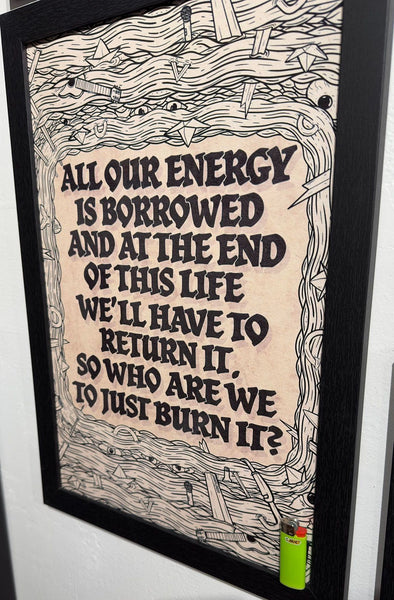 ALL OUR ENERGY
IS BORROWED
AND AT THE END
OF THIS LIFE
WE'LL HAVE TO
RETURN IT,
SO WHO ARE WE
TO JUST BURN IT?